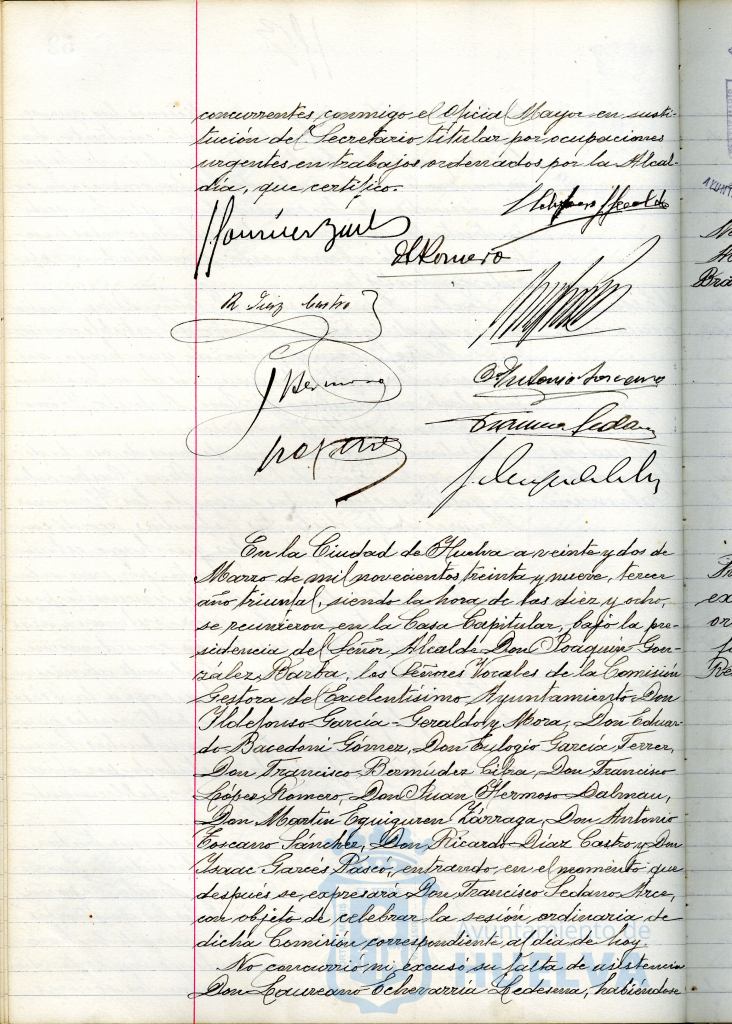 concurrentes, conmigo el Oficial Mayor en susti-
tución del Secretario titular por ocupaciones
urgentes en trabajos ordenados por la Alcal-
día, que certifico.
F. Romero
R Diaz Castro
J Hermoso
Antonio Toscano
Francisco Sedano
En la Ciudad de Huelva a veinte y dos de
Marzo de mil novecientos treinta y nueve, tercer
año triunfal, siendo la hora de las diez y ocho,
se reunieron en la Casa Capitular, bajo la pre-
sidencia del Señor Alcalde Don Joaquín Gon-
zález Barba, los Señores Vocales de la Comisión
Gestora del Excelentísimo Ayuntamiento Don
Ildefonso García-Geraldo y Mora, Don Eduar-
do Bacedoni Gómez, Don Eulogio García Ferrer,
Don Francisco Bermúdez Cibra, Don Francisco
López Romero, Don Juan Hermoso Dalmau,
Don Martín Eguiguren Xárraga, Don Antonio
Toscano Sánchez, Don Ricardo Díaz Castro y Don
Isaac Garcés Pascó, entrando, en el momento que
después se expresará Don Francisco Sedano Arce,
con objeto de celebrar la sesión ordinaria de
dicha Comisión correspondiente al día de hoy.
No concurrió ni excusó su falta de asistencia
Don Laureano Echevarría Ledesma, habiéndose
Ayuntamiento de
HUELVA